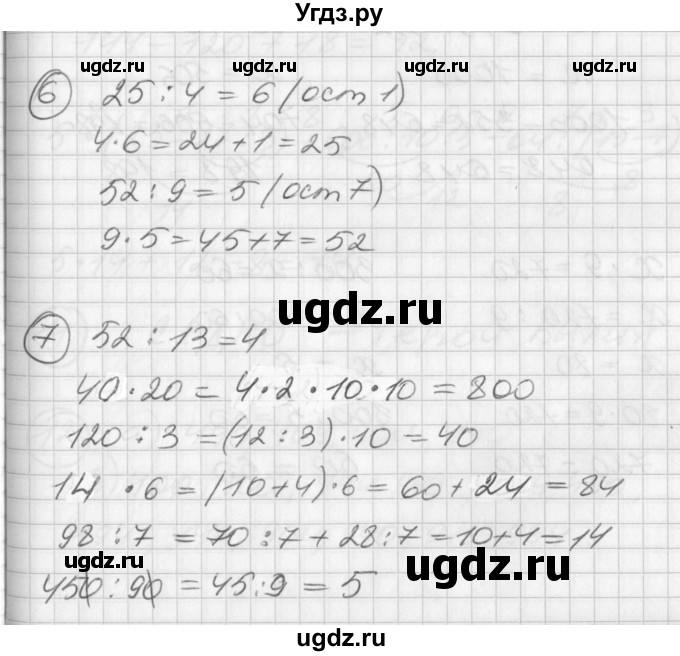 Угдз.ру
ugdz.ru ugdz.ru ugdz.ru
6 25 : 4 = 6 (ост 1)
4·6=24+1=25
52 : 9 = 5 (ост 7)
9·5=45+7=52
ugdz.ru
7 52 : 13 = 4
40·20 = 4·2·10·10 = 800
120 : 3 = (12 : 3)·10 = 40
14 ·6 = (10+4)·6 = 60+24 = 84
98 : 7 = 70 : 7 + 28 : 7 = 10+4 = 14
ugdz.ru ugdz.ru
450 : 90 = 45 : 9 = 5
ugdz.ru